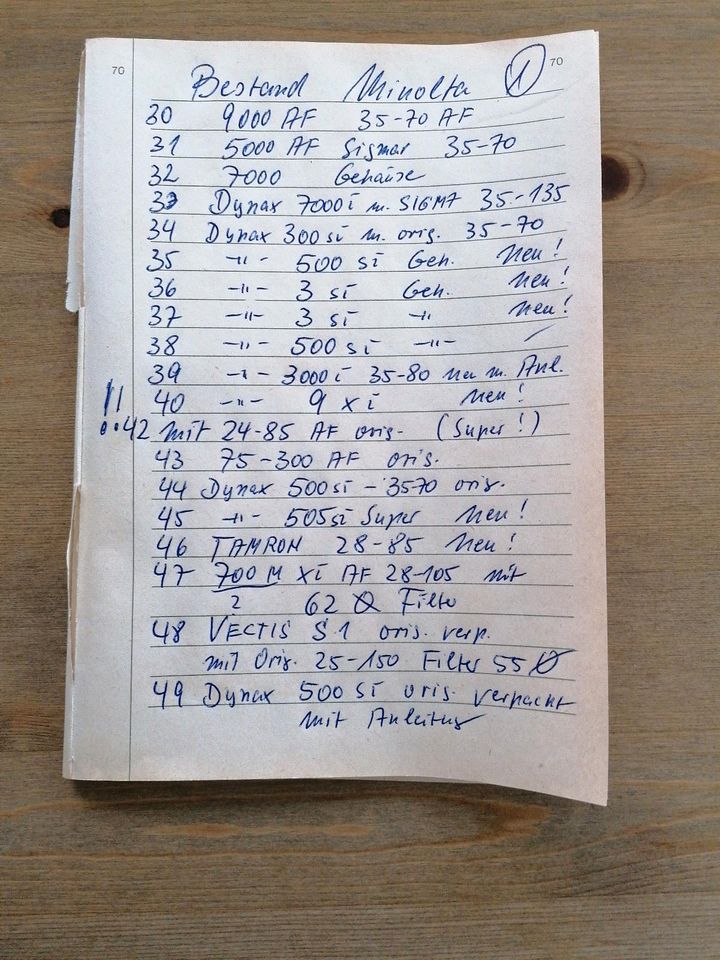 70 70
Bestand Minolta 1
30 9000 AF 35-70 AF
31 5000 AF Sigmar 35-70
32 7000 Gehäuse
33 Dynax 7000i m. SIGMA 35-135
34 Dynax 300si m. orig. 35-70
35 -"- 500 si Geh. Neu!
36 -"- 3 si Geh. Neu!
37 -"- 3 si -"- Neu!
38 -"- 500 si -"- -
39 -"- 3000i 35-80 neu m. Anl.
!! 40 -"- 9 xi Neu!
42 mit 24-85 AF orig. (Super!)
43 75-300 AF orig.
44 Dynax 500si - 3570 orig.
45 -"- 505si Super Neu!
46 TAMRON 28-85 Neu!
47 700 M xi AF 28-105 mit
2 62 Ø Filter
48 VECTIS S1 orig. verp.
mit Orig. 25-150 Filter 55 Ø
49 Dynax 500 si orig. verpackt
mit Anleitung